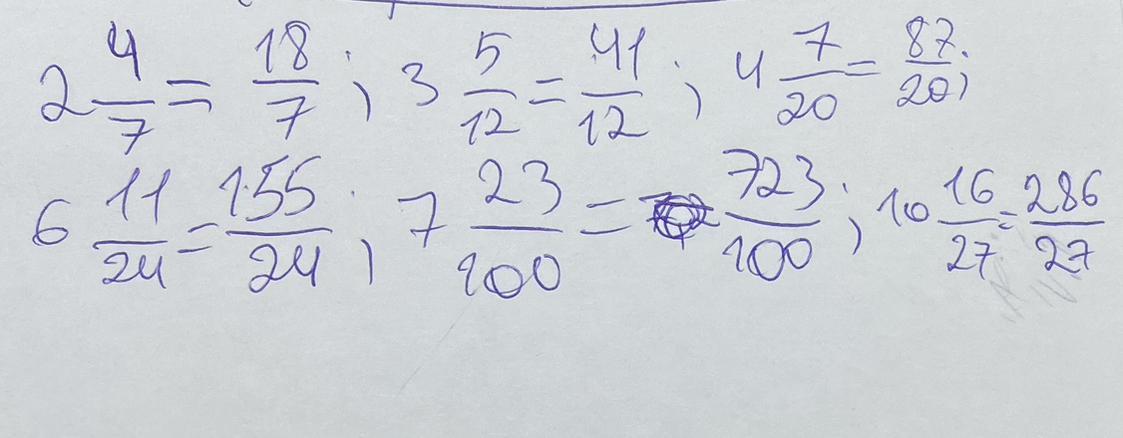 2 4/7 = 18/7 ; 3 5/12 = 41/12 ; 4 7/20 = 87/20 ;
6 11/24 = 155/24 ; 7 23/100 = 723/100 ; 10 16/27 = 286/27